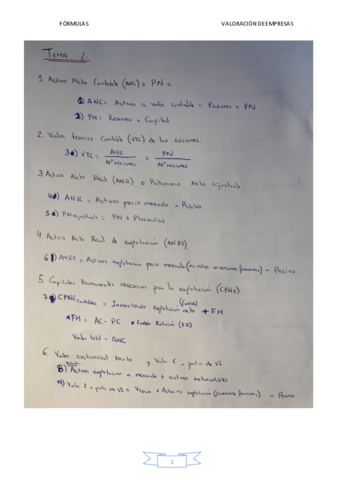 FÓRMULAS VALORACIÓN DE EMPRESAS
TEMA 2:
1. Activo Neto Contable (ANC) = PN =
1) ANC = Activos a valor contable - Pasivos = PN
2) PN = Reservas + Capital
2. Valor teórico Contable (VTC) de las acciones.
3) VTC = ANC / Nº acciones = PN / Nº acciones
3. Activo Neto Real (ANR) o Patrimonio Neto ajustado
4) ANR = Activos precio mercado - Pasivo
5) PN ajustado = PN + Plusvalías
4. Activo Neto Real de explotación (ANRE)
6) ANRE = Activos explotación precio mercado - Pasivo
5. Capitales Permanentes necesarios para la explotación (CPNE)
7) CPNE contables = Inmovilizado explotación neto + FM
FM = AC - PC Fondo Rotación (FR)
Valor total = ANC
6. Valor sustancial bruto y Valor E
8) Activos explotación a mercado + activos
9) Valor E = + Activos explotación - Pasivo
1